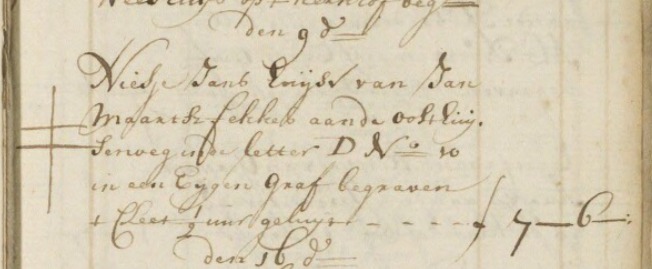 op't kerkhof beg
den 9 d°
Niesje Jans huijsv van Jan
Maartsz Fekkes aande oosthuij.
serweg inde letter D N° 10
in een Eijgen graf begraven
t Cleet ½ uur geluyt - - - - ƒ 7 — 6 —:
den 16 d°